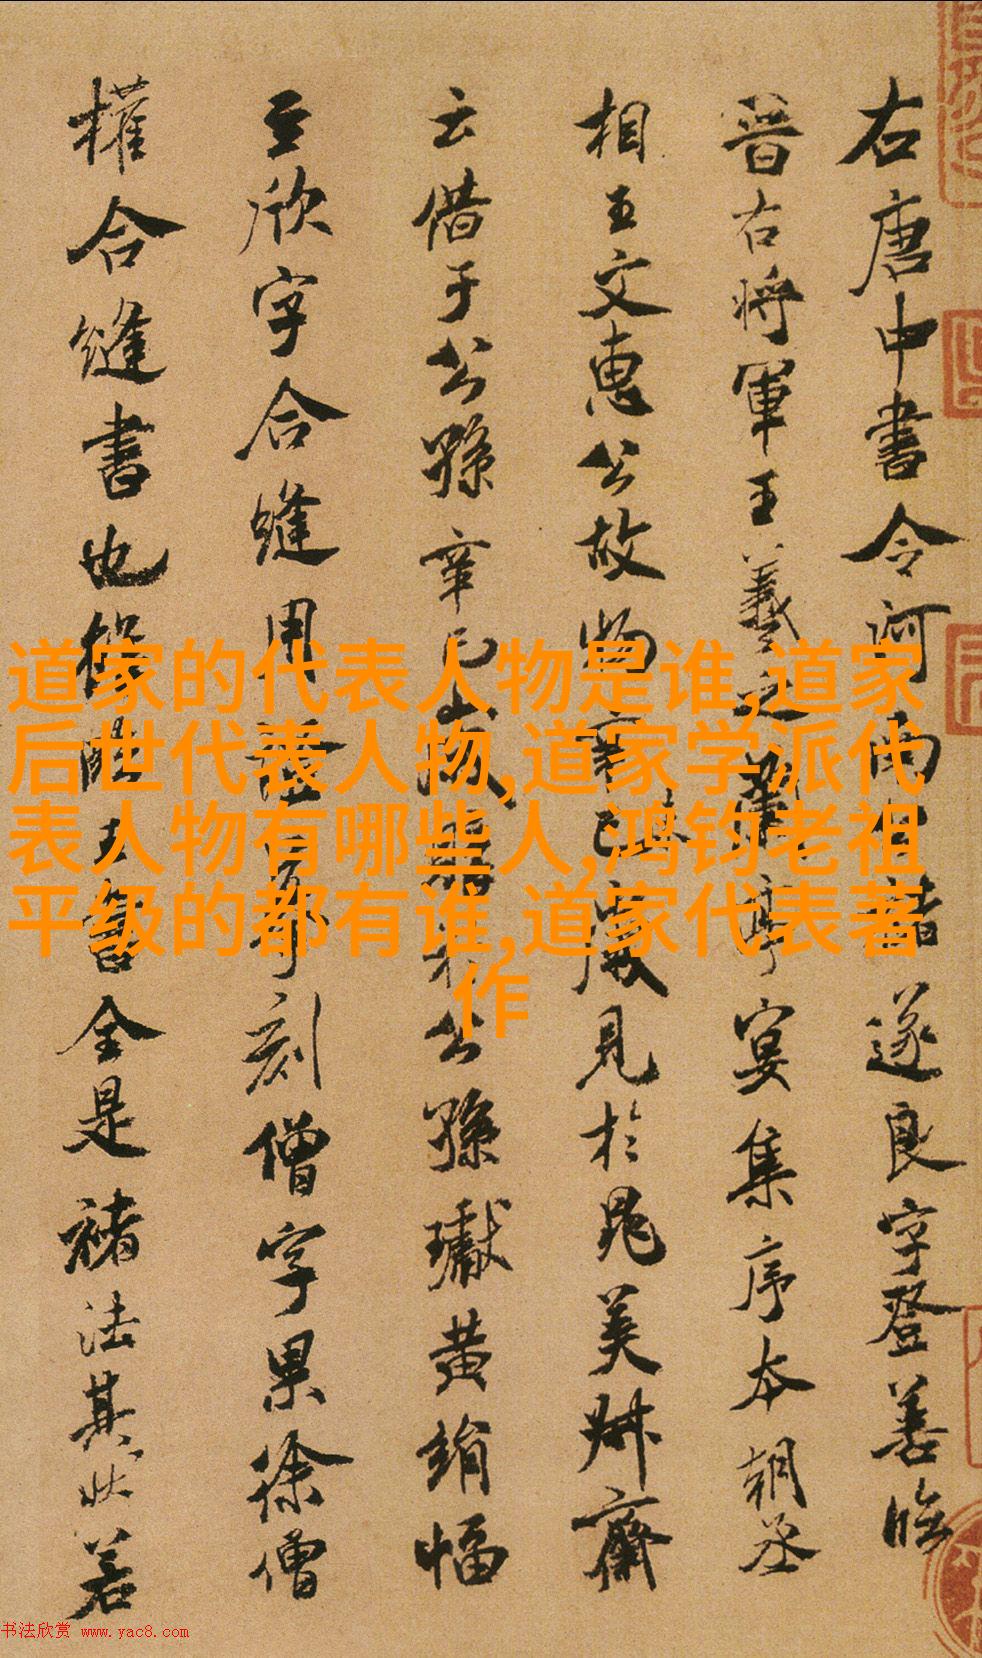 右唐中書令河南褚遂良字登善臨
晉右將軍王羲之蘭亭宴集序本朝丞
相王文惠公故物辛巳歲見於晁美叔齋
云借于公孫辛巳歲購於公孫瓛黃絹幅
至欣字合縫用證摹刻僧字果徐僧
權合縫書也雖臨王書全是褚法其狀若
道家的代表人物是谁,道家
后世代表人物,道家学派代
表人物有哪些人,鸿钧老祖
平级的都有谁,道家代表著
作
书法欣赏 www.yac8.com